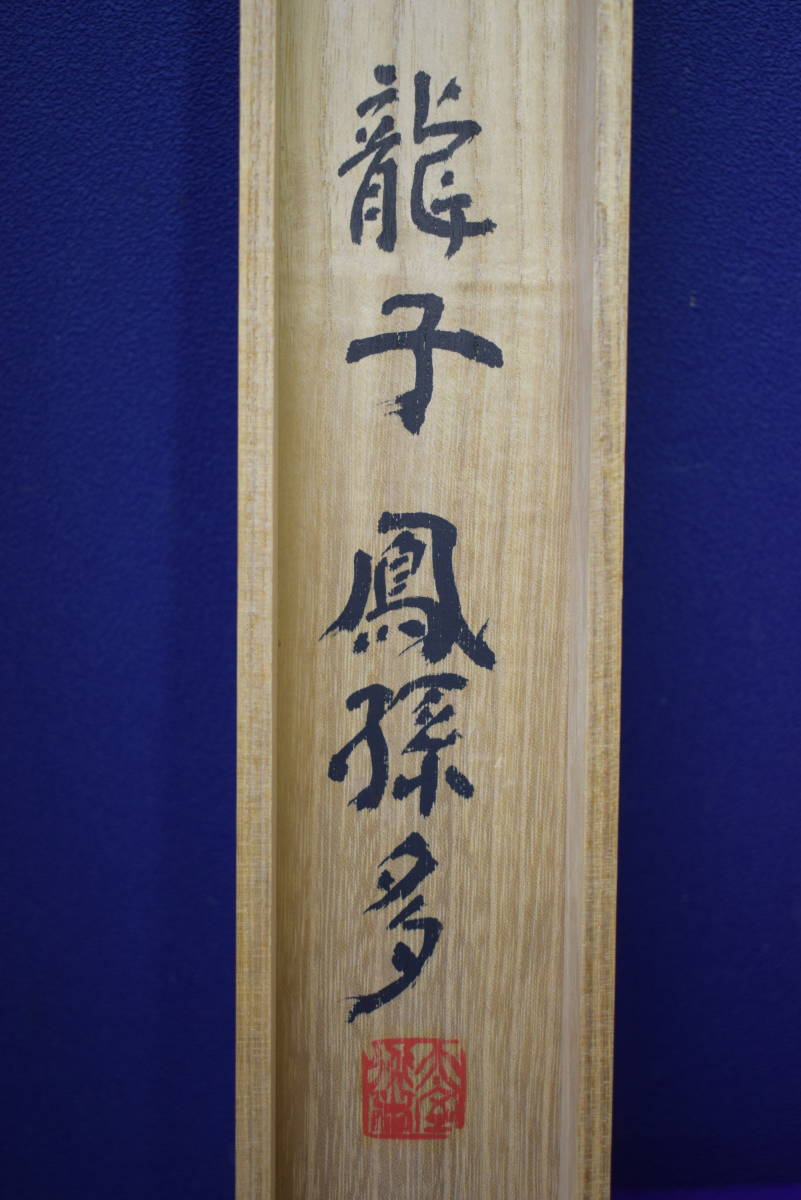 龍子鳳孫多